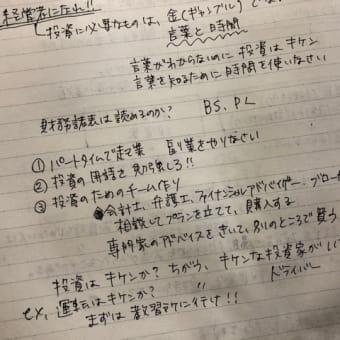 経営者になれ!!
投資に必要なものは、金(ギャンブル)でな
言葉と時間
言葉がわからないのに投資はキケン
言葉を知るために時間を使いなさい
財務諸表は読めるのか? BS、PL
① パートタイムで起業 副業をやりなさい
② 投資の用語を勉強しろ!!
③ 投資のためのチーム作り
会計士、弁護士、ファイナンシャルアドバイザー、ブローカ
相談してプランを立てて、購入する
専門家のアドバイスをきいて、別のところで買う
投資はキケンか? ちがう、キケンな投資家がいる
ex、運転はキケンか? 〃 ドライバー
まずは教習所に行け!!